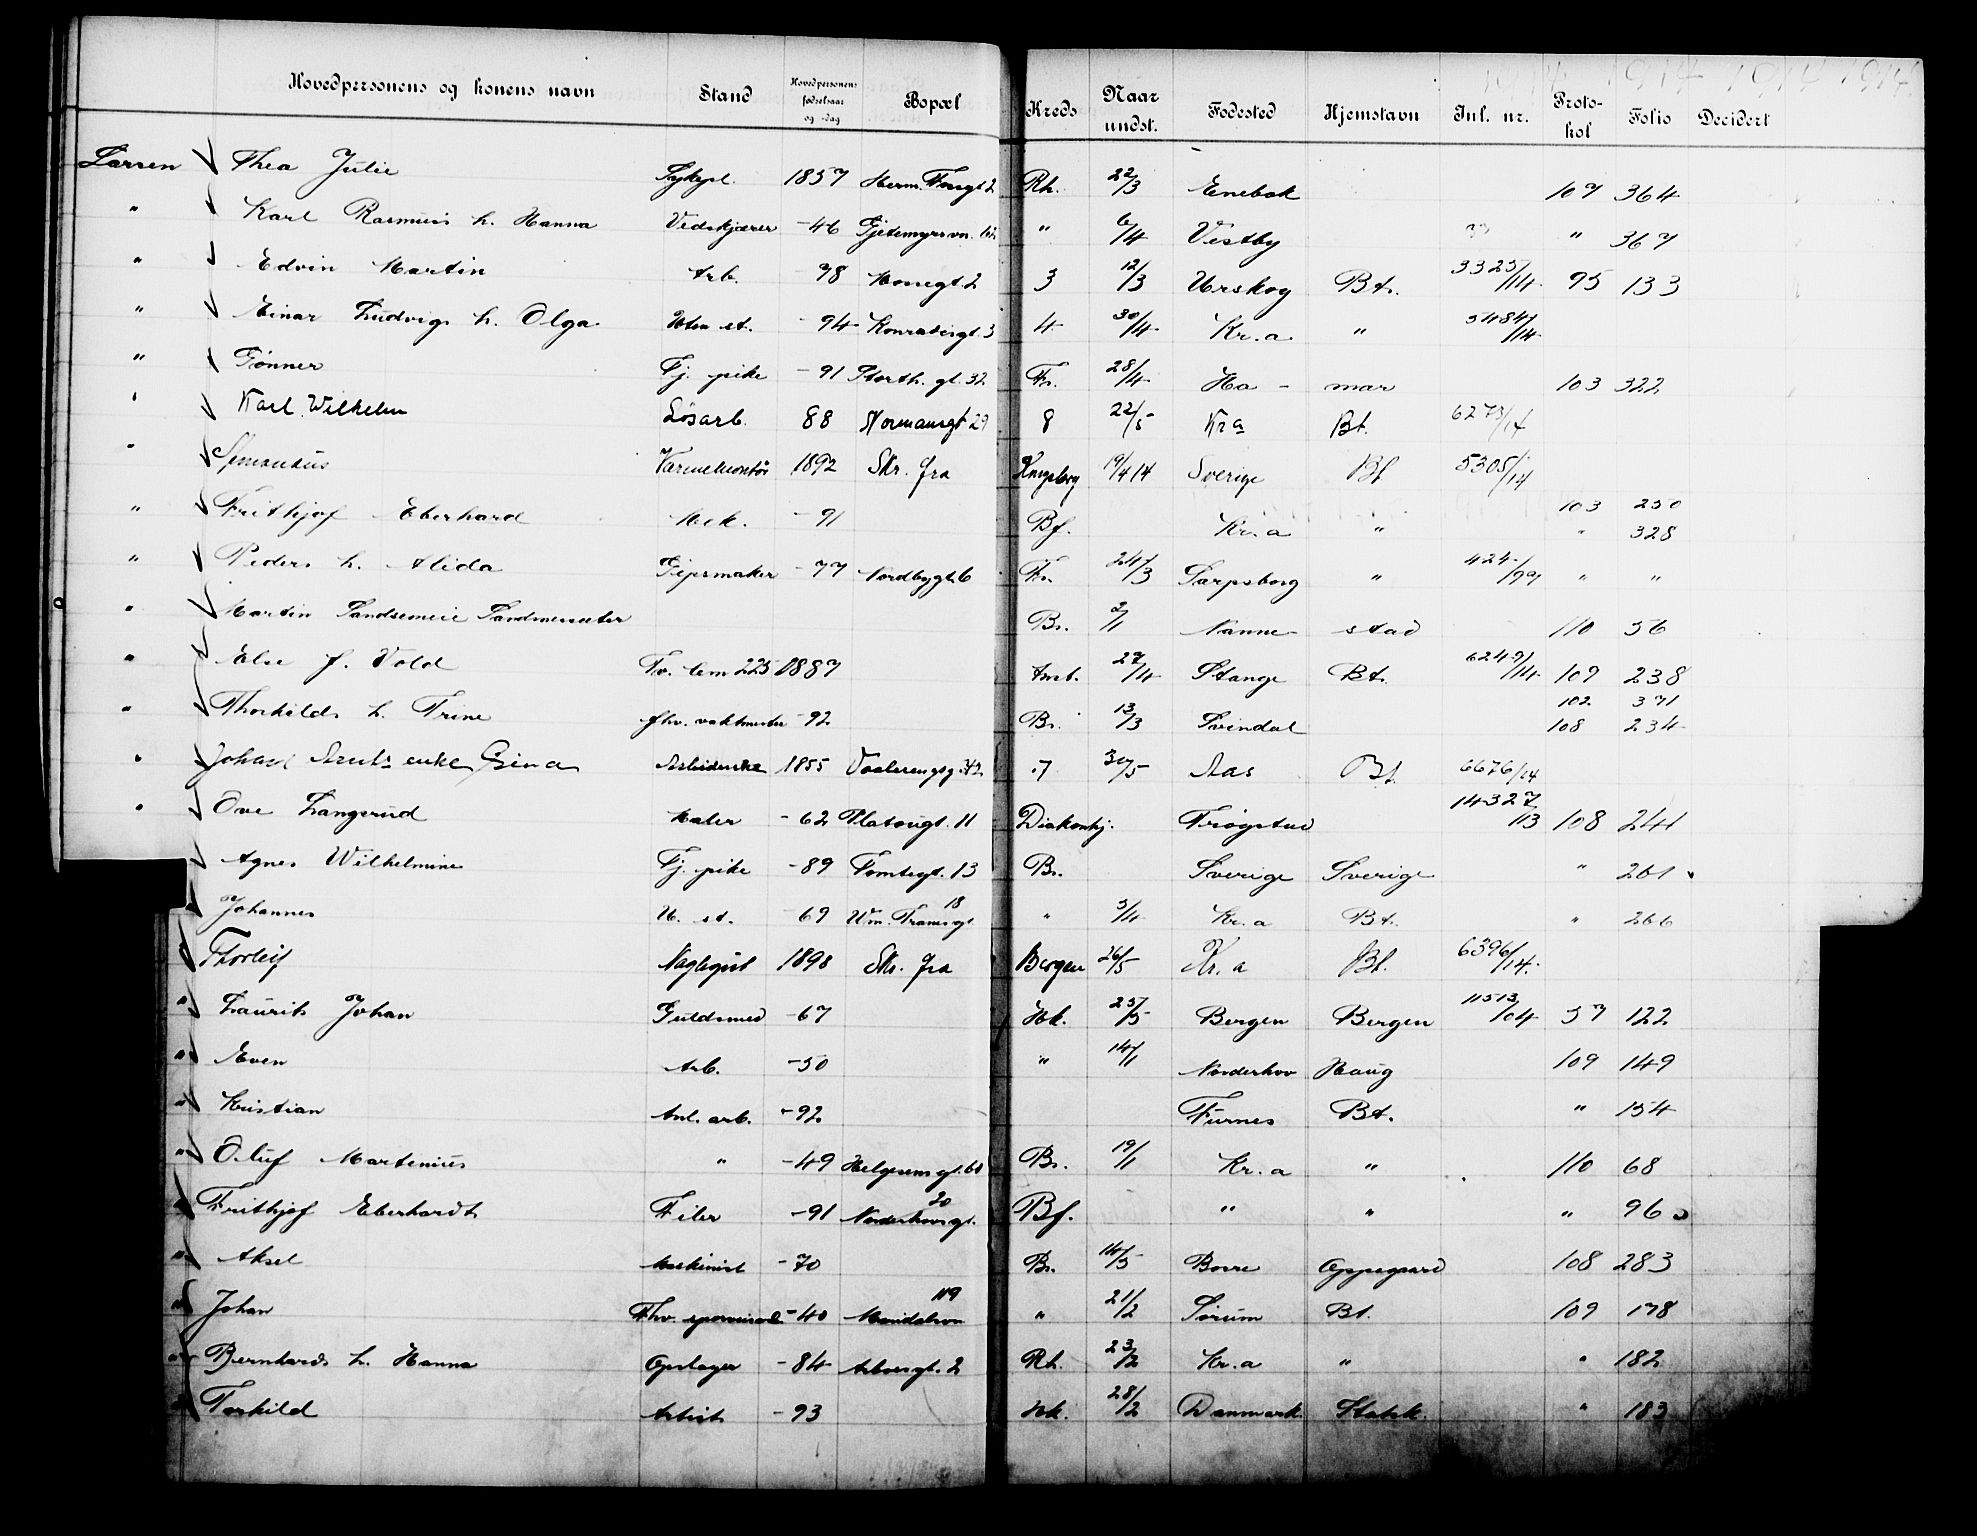 1914 1914 1914
Hovedpersonens og konens navn Stand Hovedpersonens fødselsaar og -dag Bopæl Kreds Naar undst. Fødested Hjemstavn Jnl. nr. Protokol Folio Decidert
Larsen Thea Julie Sykepl. 1857 Herm. Fossgt 2 Rh. 22/3 Enebak 107 364
" Karl Rasmus h. Hanna Vedskjærer -46 Gjetemyrsvn. " 6/4 Vestby " 367
" Edvin Martin Arb. -98 Monegt. 2 3 12/3 Urskog Bt. 3325/14 95 133
" Einar Ludvigs h. Olga Uten st. -94 Konradisgt. 3 4 30/4 Kr.a " 5484/14
" Tønner Tj. pike -91 Storth. gt. 32 Fr. 28/4 Ha - mar 103 322
" Karl Wilhelm Løsarb. 88 Normansgt 29 8 22/5 Kra Bt. 6273/14
" 1892 Skr. fra Kongsberg 19/4 14 Sverige Bf 5305/14
" Frithjof Eberhard Mek. -91 Bf. Kr.a " 103 250
" 328
" Peders h. Alida Gipsmaker -77 Nordbygt. 6 Fr. 24/3 Sarpsborg " 424/99 " "
" Martin Br. 2/1 Nanne- stad 110 56
" Else f. Vold Tv. lem 225 1887 Amt. 27/4 Stange Bt. 6249/14 109 238
102 371
" Thorkilds h. Trine fhv. vaktmester -92 Br. 13/3 Svindal 108 234
" Johan enke Gina Arbeiderske 1855 Vaalerengsg. 7 30/5 Aas Bt. 6676/14
" Ove Langerud Maler -62 Platougt. 11 Diakonhj. Trøgstad 14327/13 108 241
Agnes Wilhelmine Tj. pike -89 Tomtegt. 13 Br. Sverige Sverige " 261
Johannes U. st. -69 Wm. Thranesgt 18 " 3/4 Kr.a Bt. " 266
" Thorleif 1898 Skr. fra Bergen 26/5 Kr.a Bf. 6396/14.
" Laurits Johan Guldsmed -67 Hk. 25/5 Bergen Bergen 11513/04 57 122
" Even Arb. -50 " 14/1 Norderhov Haug 109 149
" Kristian Anl. arb. -92 Furnes Bt. " 154
" Oluf Martinius " -49 Helgesens gt. 60 Br. 19/1 Kr.a " 110 68
" Frithjof Eberhardt Filer -91 Norderhovsgt. 20 Bf. " " " 96
" Aksel Maskinist -70 Br. 14/5 Borre Oppegaard 108 283
" Johan Fhv. -40 Maridalsvn 119 " 21/2 Sørum Bt. 109 178
" Bernhards h. Hanna Opslager -84 2 Rh. 23/2 Kr.a " " 182
" Torkild Artist -93 Hk. 28/2 Danmark Statsk. " 183